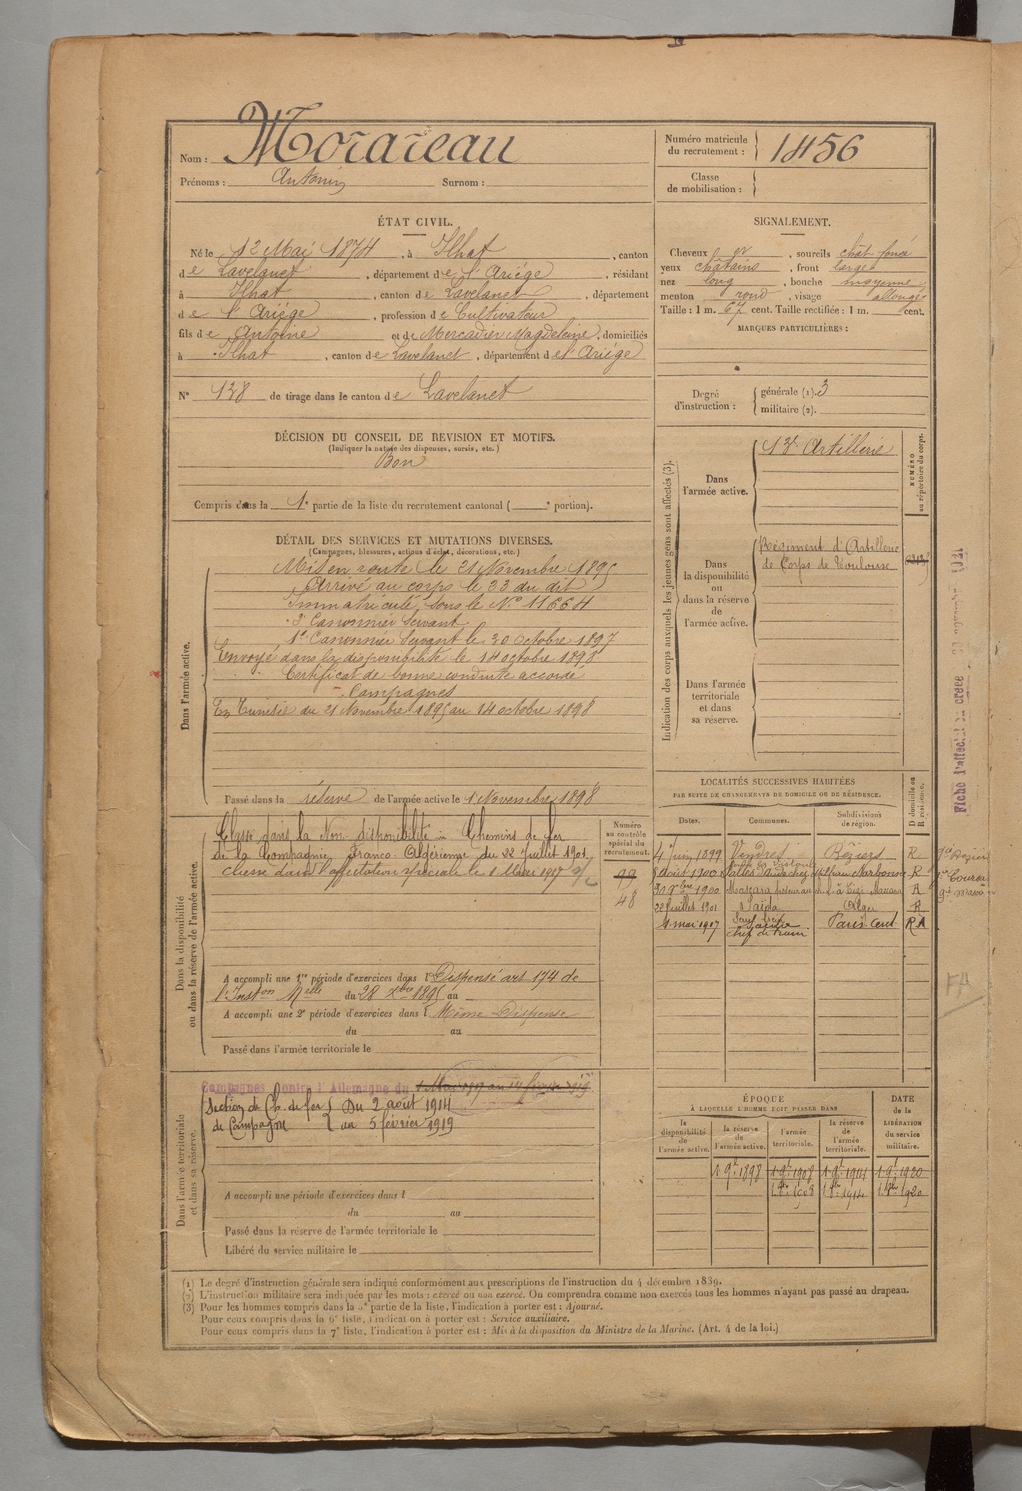 Nom : Morareau
Prénoms : Antonin Surnom :
Numéro matricule
du recrutement : 1456
Classe
de mobilisation :
ÉTAT CIVIL.
Né le 12 Mai 1874, à Ilhat, canton
de Lavelanet, département de l'Ariége, résidant
à Ilhat, canton de Lavelanet, département
de l'Ariége, profession de Cultivateur
fils de Antoine et de Mercadier Magdeleine, domiciliés
à Ilhat, canton de Lavelanet, département de l'Ariége
N° 138 de tirage dans le canton de Lavelanet
DÉCISION DU CONSEIL DE REVISION ET MOTIFS.
(Indiquer la nature des dispenses, sursis, etc.)
Bon
Compris dans la 1e partie de la liste du recrutement cantonal ( e portion).
SIGNALEMENT.
Cheveux , sourcils chât foncé
yeux châtains, front large
nez long, bouche moyenne
menton rond, visage allongé
Taille : 1 m. 67 cent. Taille rectifiée : 1 m. cent.
MARQUES PARTICULIÈRES :
Degré
d'instruction :
générale (1). 3
militaire (2).
DÉTAIL DES SERVICES ET MUTATIONS DIVERSES.
(Campagnes, blessures, actions d'éclat, décorations, etc.)
Dans l'armée active.
Mis en route le 21 Novembre 1895
Arrivé au corps le 23 du dit
Immatriculé sous le N° 11664
2e Canonnier Servant
1er Canonnier Servant le 30 octobre 1897
Envoyé dans la disponibilité le 14 octobre 1898
Certificat de bonne conduite accordé
Campagnes
En Tunisie du 21 Novembre 1895 au 14 octobre 1898
Passé dans la réserve de l'armée active le 1 Novembre 1898
Indication des corps auxquels les jeunes gens sont affectés (3).
Dans
l'armée active.
13e Artillerie
NUMÉRO
au répertoire du corps.
Dans
la disponibilité
ou
dans la réserve
de
l'armée active.
Régiment d'Artillerie
de Corps de Toulouse
Dans l'armée
territoriale
et dans
sa réserve.
Dans la disponibilité
ou dans la réserve de l'armée active.
Classé dans la Non disponibilité - Chemins de fer
de la Compagnie Franco-Algérienne du 22 Juillet 1901
classé dans l'affectation spéciale le 1 Mars 1917
Numéro
au contrôle
spécial du
recrutement.
99
48
A accompli une 1re période d'exercices dans l Dispensé art 174 de
l'Inston Mlle du 28 Xbre 1895 au
A accompli une 2e période d'exercices dans l Même Dispense
du au
Passé dans l'armée territoriale le
LOCALITÉS SUCCESSIVES HABITÉES
PAR SUITE DE CHANGEMENTS DE DOMICILE OU DE RÉSIDENCE.
Dates. Communes. Subdivisions
de région. D domicile ou
R résidence.
4 juin 1899 Vendres Béziers R
août 1900 Narbonne R
30 9bre 1900 Mascara Mascara R
22 juillet 1901 Saïda Oran R
4 mai 1917 Saïda
chef de train Paris Cent R A
FA
Fiche
Dans l'armée territoriale
et dans sa réserve.
Campagnes contre l'Allemagne du
Section de Ch. de fer Du 2 août 1914
de Campagne au 5 février 1919
A accompli une période d'exercices dans l
du au
Passé dans la réserve de l'armée territoriale le
Libéré du service militaire le
ÉPOQUE
À LAQUELLE L'HOMME DOIT PASSER DANS
la
disponibilité
de
l'armée active.
la réserve
de
l'armée active.
l'armée
territoriale.
la réserve
de
l'armée
territoriale.
DATE
de la
LIBÉRATION
du service
militaire.
1 9bre 1898 1 9bre 1908 1 9bre 1914 1 9bre 1920
(1) Le degré d'instruction générale sera indiqué conformément aux prescriptions de l'instruction du 4 décembre 1889.
(2) L'instruction militaire sera indiquée par les mots : exercé ou non exercé. On comprendra comme non exercés tous les hommes n'ayant pas passé au drapeau.
(3) Pour les hommes compris dans la 5e partie de la liste, l'indication à porter est : Ajourné.
Pour ceux compris dans la 6e liste, l'indication à porter est : Service auxiliaire.
Pour ceux compris dans la 7e liste, l'indication à porter est : Mis à la disposition du Ministre de la Marine. (Art. 4 de la loi.)